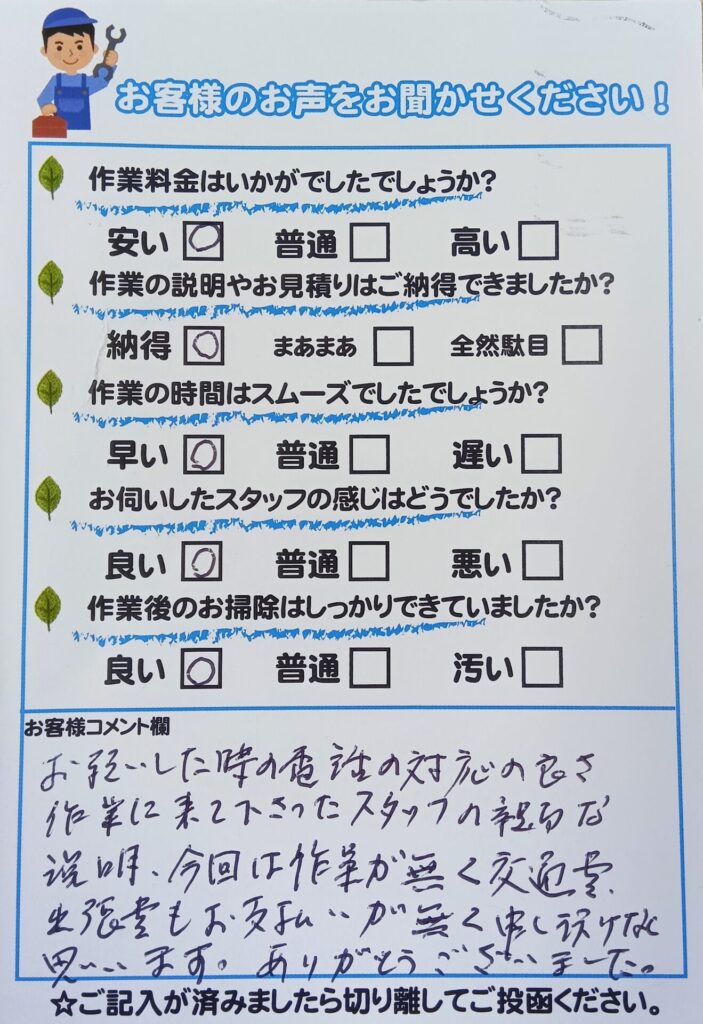 お客様のお声をお聞かせください！
作業料金はいかがでしたでしょうか?
安い 普通 高い
作業の説明やお見積りはご納得できましたか?
納得 まあまあ 全然駄目
作業の時間はスムーズでしたでしょうか?
早い 普通 遅い
お伺いしたスタッフの感じはどうでしたか?
良い 普通 悪い
作業後のお掃除はしっかりできていましたか?
良い 普通 汚い
お客様コメント欄
お願いした時の電話の対応の良さ
作業に来て下さったスタッフの親切な
説明、今回は作業が無く交通費、
出張費もお支払いが無く申し訳けなく
思います。ありがとうございました。
☆ご記入が済みましたら切り離してご投函ください。